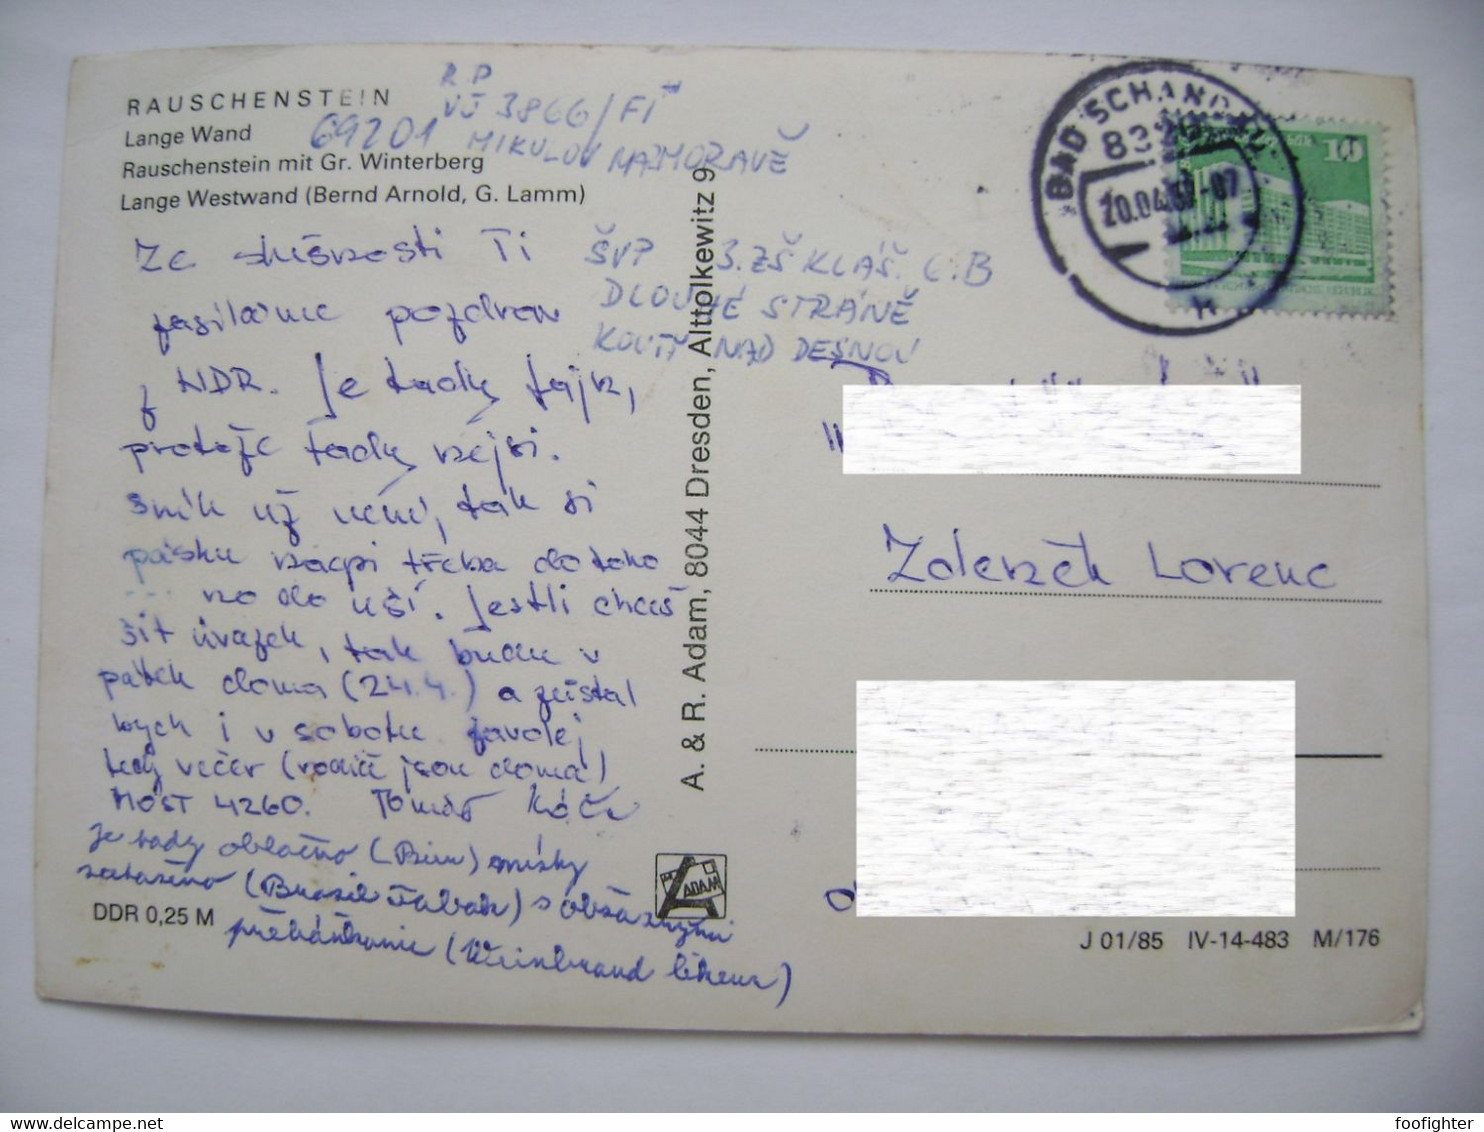 RAUSCHENSTEIN
Lange Wand
Rauschenstein mit Gr. Winterberg
Lange Westwand (Bernd Arnold, G. Lamm)
R P
VÚ 3866/FI
69201 MIKULOV NA MORAVĚ
ŠVP 3.ZŠ KLÁŠ. 6.B
DLOUHÉ STRÁNĚ
KOUTY NAD DESNOU
Ze slušnosti Ti
zasíláme pozdrav
z NDR. Je tady fajn,
protože tady nejsi.
sník už není, tak si
pásku nacpi třeba do toho
no do uší. Jestli chceš
šít úvazek, tak budu v
pátek doma (24.4.) a zůstal
bych i v sobotu. zavolej
tedy večer (rodiče jsou doma)
MOST 4260. Tomáš
Je tady oblačno (Bier) místy
zataženo (Brasil Tabak) s občasnými
přeháňkami (Weinbrand likeur)
A. & R. Adam, 8044 Dresden, Alttolkewitz 9
ADAM
BAD SCHANDAU
20.04.87-07
h
10
Zdeněk Lorenc
DDR 0,25 M
J 01/85 IV-14-483 M/176
delcampe.net
foofighter